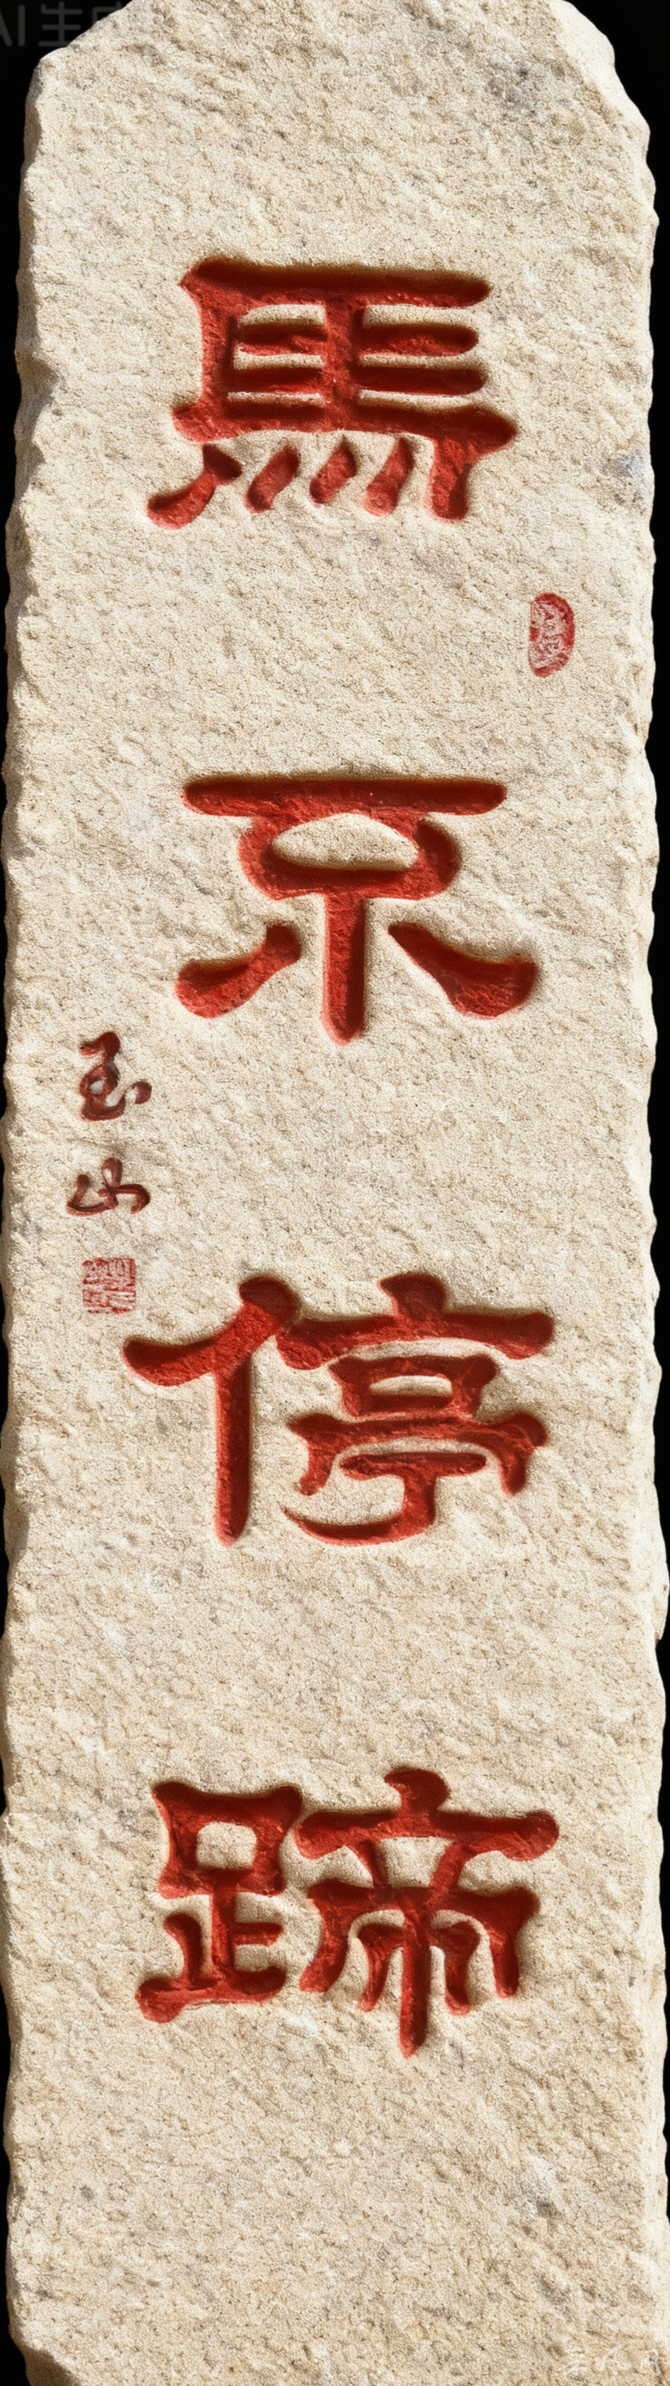 AI生成
馬不停蹄
玉山